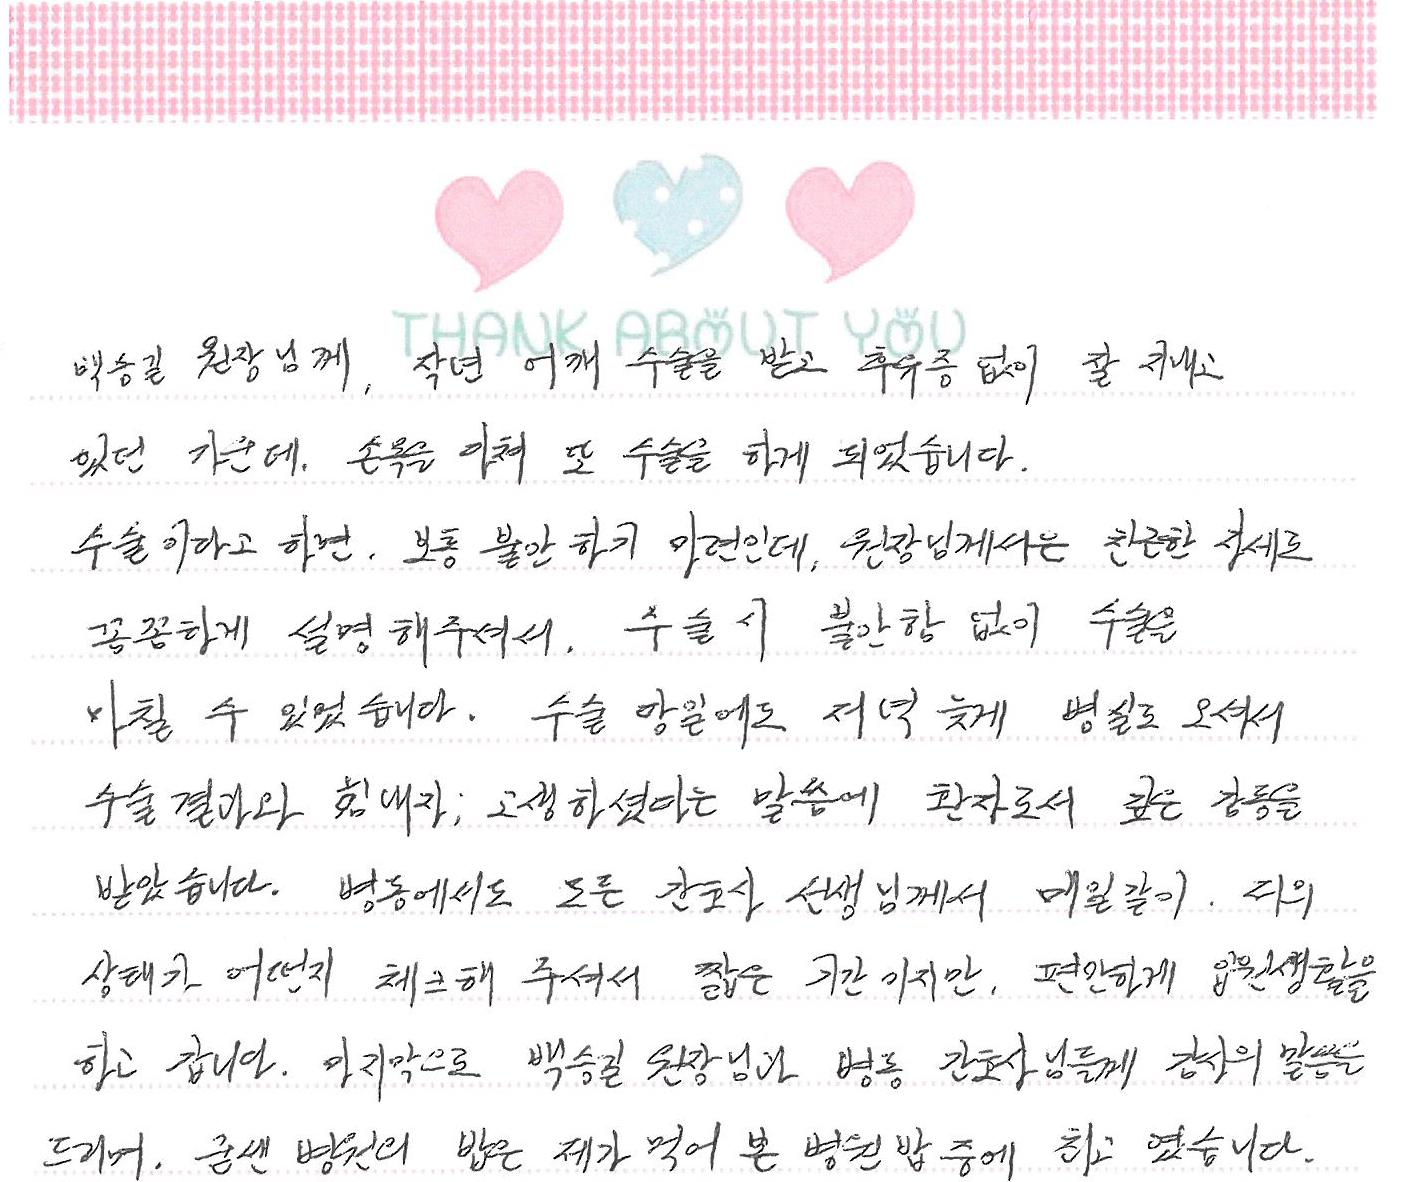 THANK ABOUT YOU
백승길 원장님께, 작년 어깨 수술을 받고 후유증 없이 잘 지내고
있던 가운데. 손목을 다쳐 또 수술을 하게 되었습니다.
수술이라고 하면. 보통 불안하기 마련인데, 원장님께서는 친근한 자세로
꼼꼼하게 설명해주셔서. 수술시 불안함 없이 수술을
마칠 수 있었습니다. 수술 당일에도 저녁 늦게 병실로 오셔서
수술결과와 힘내자; 고생하셨다는 말씀에 환자로서 깊은 감동을
받았습니다. 병동에서도 모든 간호사 선생님께서 매일같이.
상태가 어떤지 체크해 주셔서 짧은 기간이지만. 편안하게 입원생활을
하고 갑니다. 마지막으로 백승길 원장님과 병동 간호사님들께 감사의 말씀을
드리며. 굳센 병원의 밥은 제가 먹어 본 병원밥 중에 최고 였습니다.